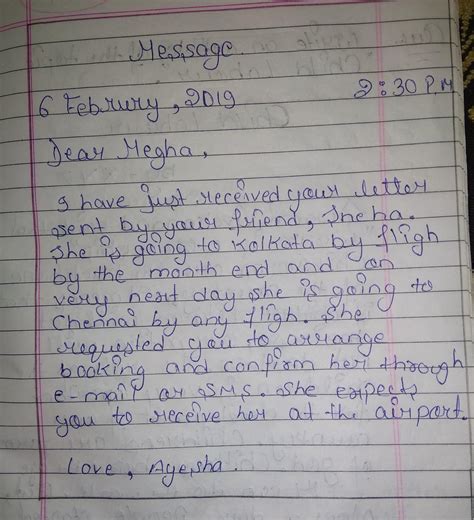 Message
6 Februry, 2019 2:30 P.M
Dear Megha,
I have just received your letter
sent by your friend, Sneha.
She is going to Kolkata by fligh
by the month end and on
very next day she is going to
Chennai by any fligh. She
requested you to arrange
booking and confirm her through
e-mail or SMS. She expects
you to receive her at the airport.
Love, Ayesha.